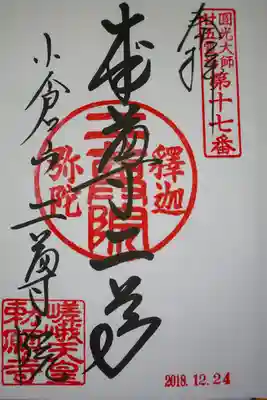 奉拝
圓光大師
廿五霊場
第十七番
本尊二尊
釋迦
二尊院
弥陀
小倉山二尊院
嵯峨天皇
勅願寺
2018.12.24